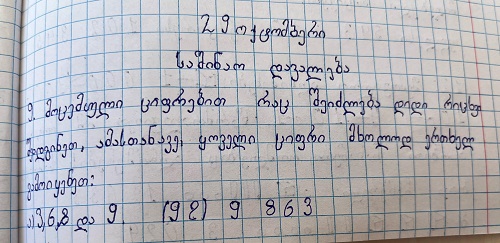 29 ოქტომბერი
საშინაო დავალება
9. მოცემული ციფრებით რაც შეიძლება დიდი რიცხვი
შეადგინეთ, ამასთანავე, ყოველი ციფრი მხოლოდ ერთხელ
გამოიყენეთ:
ა) 3,6,8 და 9 (92) 9 863